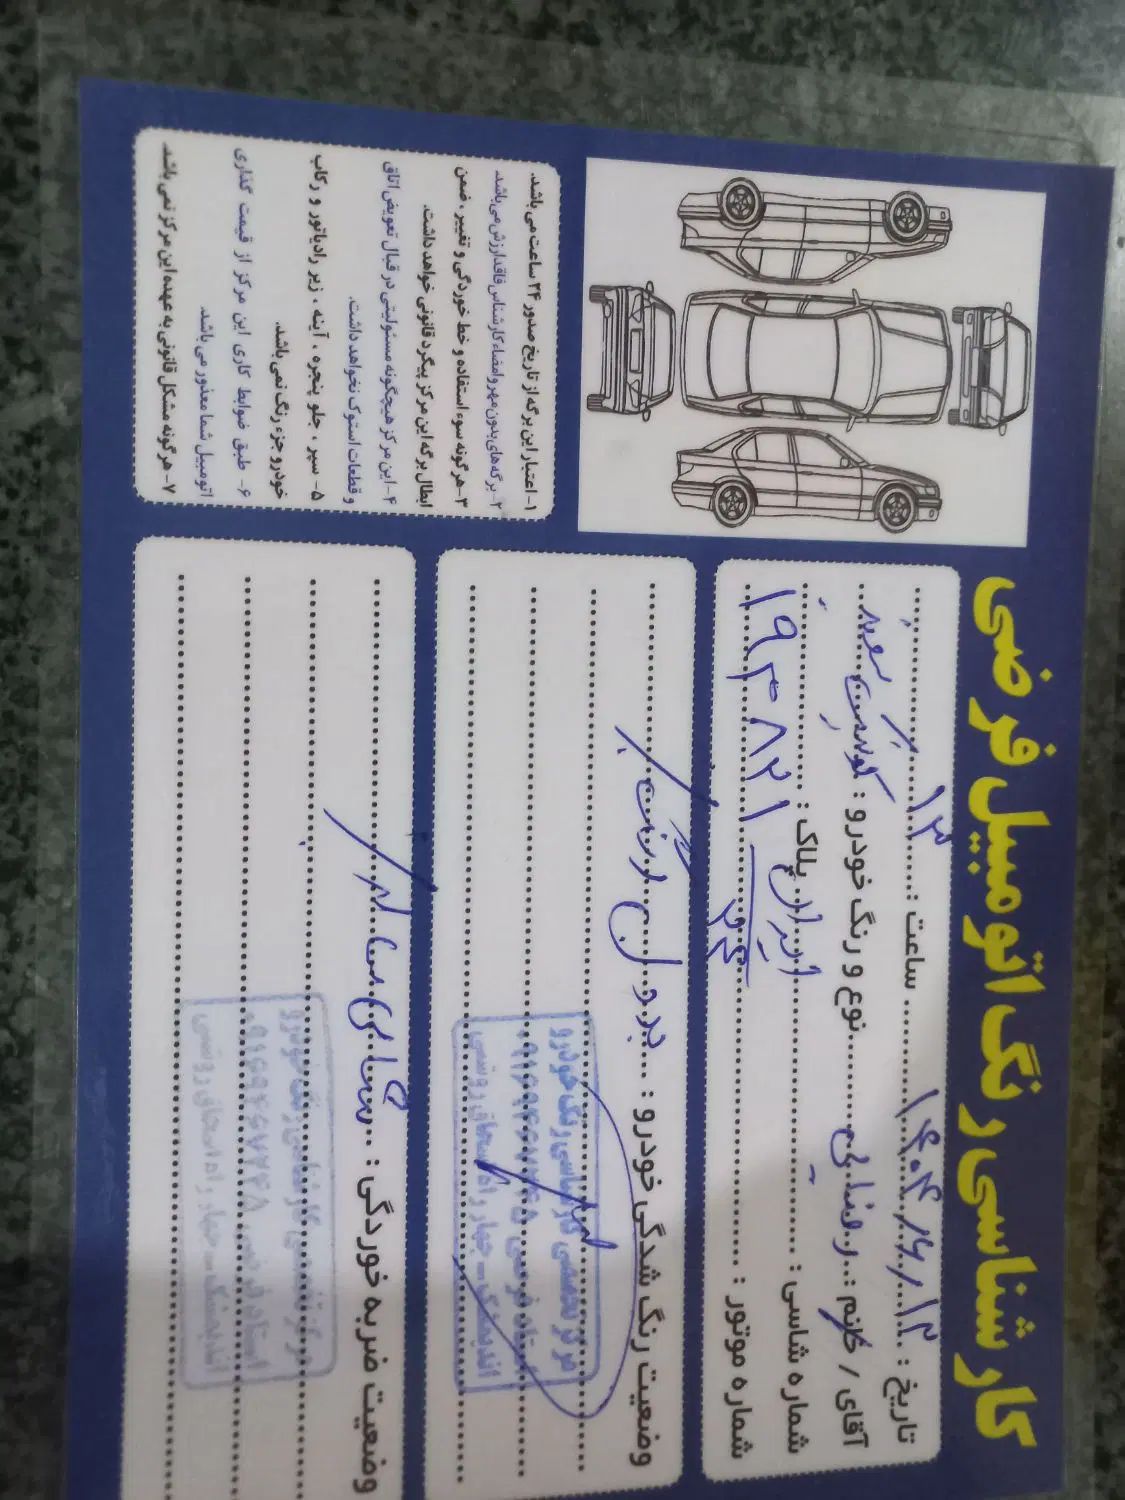 کارشناسی رنگ اتومبیل فرضی
تاریخ : ۱۴۰۴/۶/۱۲ ساعت : ۱۳
آقای / خانم : رضایی نوع و رنگ خودرو : کوییک سفید
شماره شاسی : پلاک : ایران ۲۴
شماره موتور : ۱۹۳۸۲۱
وضعیت رنگ شدگی خودرو : بدون رنگ
مرکز تخصصی کارشناسی رنگ خودرو
استاد فرضی
اندیمشک - چهار راه
وضعیت ضربه خوردگی : شاسی سالم
مرکز تخصصی کارشناسی رنگ خودرو
استاد فرضی
اندیمشک - چهار راه
۱- اعتبار این برگه از تاریخ صدور ۲۴ ساعت می باشد.
۲- برگه های بدون مهر و امضاء کارشناس فاقد ارزش می باشد.
۳- هرگونه سوء استفاده و خط خوردگی و تغییر، ضمن
ابطال برگه این مرکز پیگرد قانونی خواهد داشت.
۴- این مرکز هیچگونه مسئولیتی در قبال تعویض اتاق
و قطعات استوک نخواهد داشت.
۵- سپر ، جلو پنجره ، آینه ، زیر رادیاتور و رکاب
خودرو جزء رنگ نمی باشد.
۶- طبق ضوابط کاری این مرکز از قیمت گذاری
اتومبیل شما معذور می باشد.
۷- هرگونه مشکل قانونی به عهده این مرکز نمی باشد.